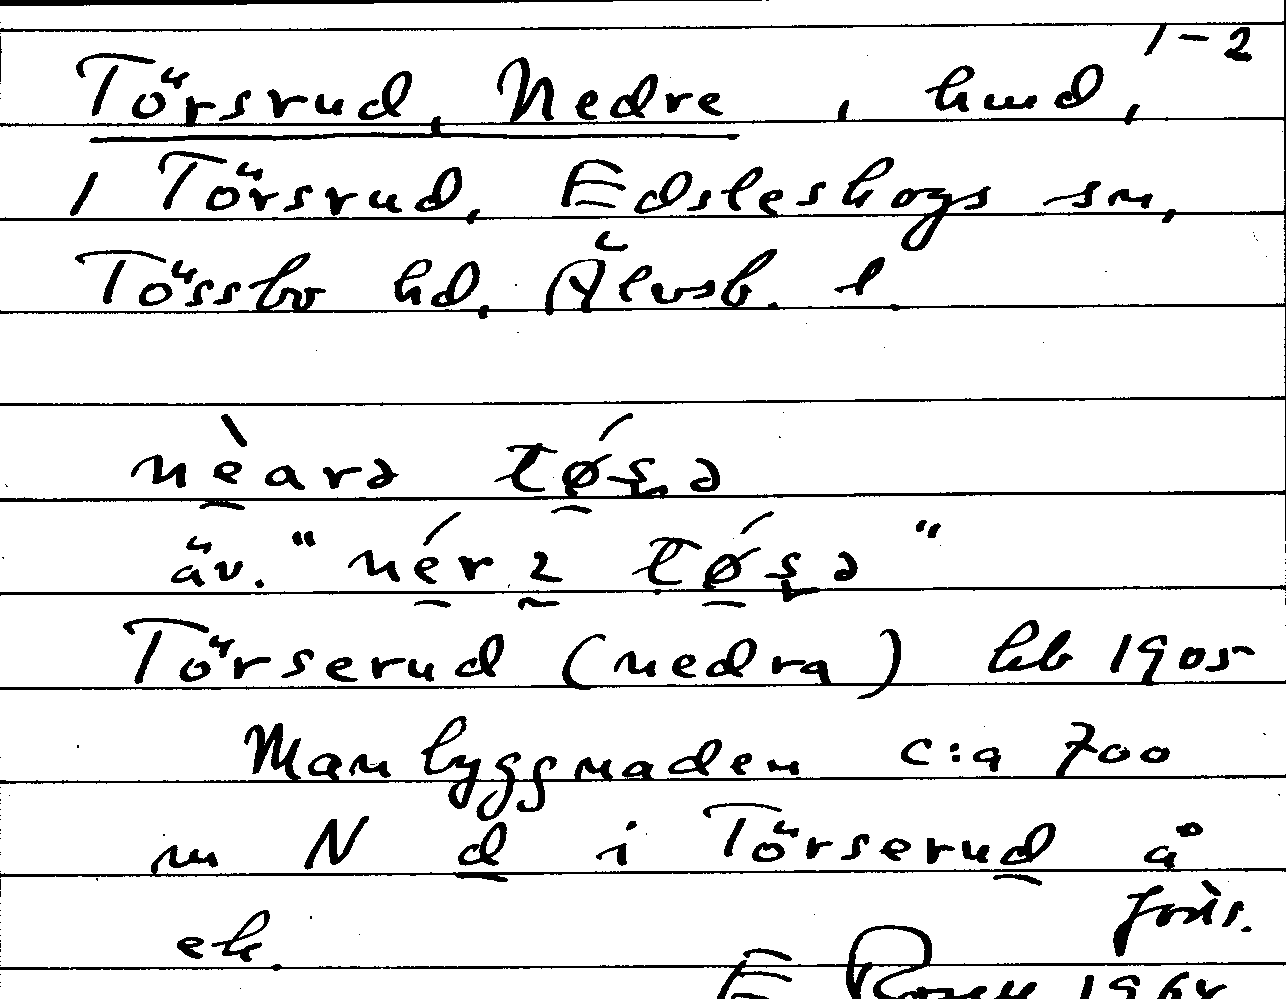 1-2
Törsrud, Nedre, hmd,
1 Törsrud, Edsleskogs sn,
Tössbo hd, Älvsb. l.
nèarə tǿʂə
äv. "nér 2 tǿʂə"
Törserud (nedra) hb 1905
Manbyggnaden c:a 700
m N d i Törserud å
förs.
ek.
E 1964